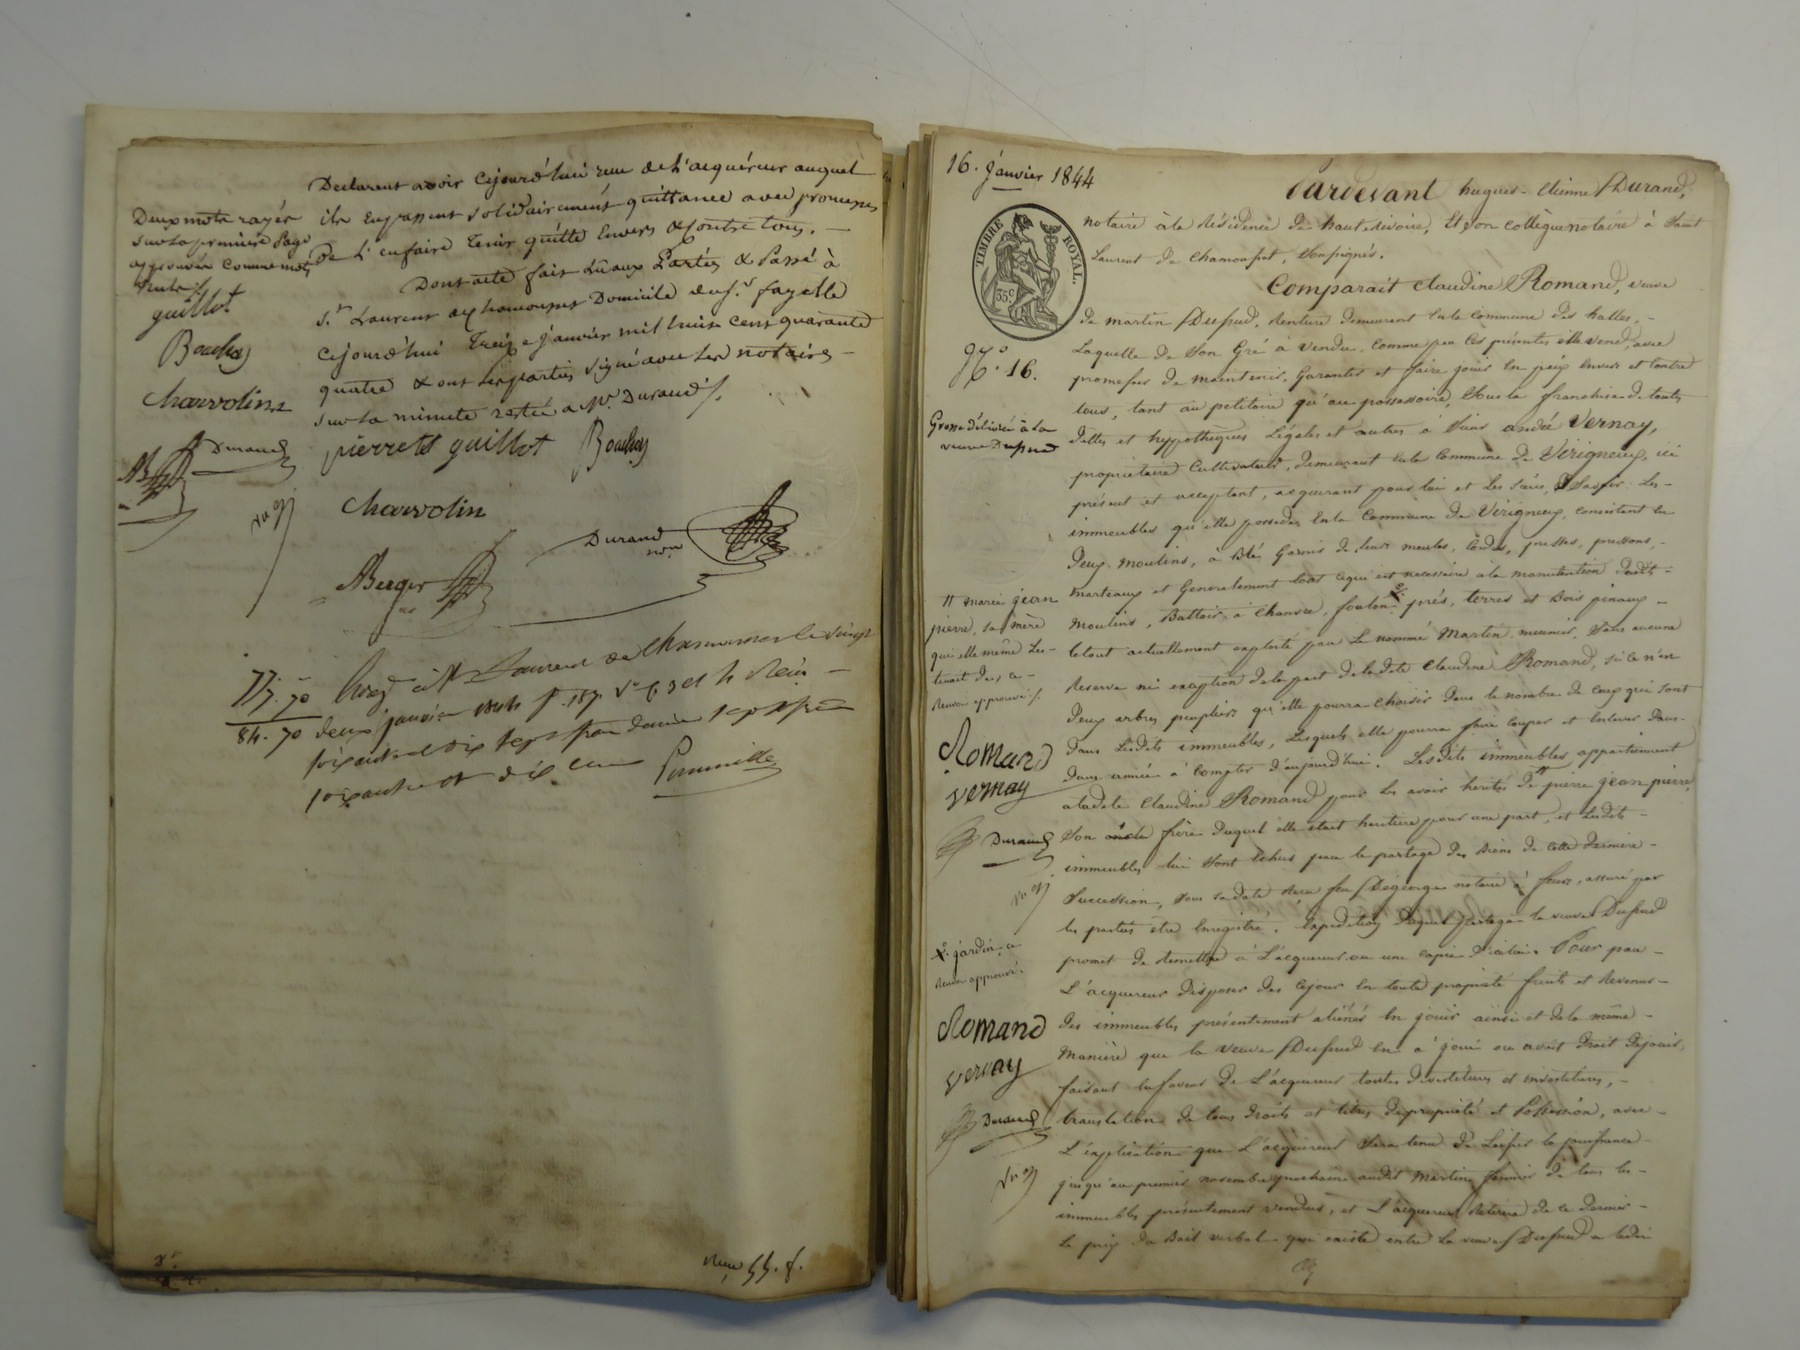 Declarent avoir cejourd'hui reçu de L'acquéreur auquel
ils en passent solidairement quittance avec promesses
De L'en faire tenir quitte Envers & Contre tous. —
Dont acte fait Lû aux Parties & Passé à
S.t Laurent de chamousset Domicile du S.r fayolle
cejourd'hui Treize Janvier mil huit cent quarante
quatre & ont Les parties signé avec Les notaires —
sur La minute restée à M.e Durand /.
Deux mots rayés
sur La première Page
approuvés comme mots
nuls /.
guillot
Bouchay
Charvolin
Durand
pierrete guillot Bouchay
Charvolin
Durand
n.re
ABerger
77. 70
84. 70
Enreg. à St Laurent de Chamousset le vingt
deux janvier 1844 f. 157 v.o c. 3 et 4 Reçu —
soixante et dix sept francs dixième sept francs
soixante et dix cent.
16. Janvier 1844
TIMBRE ROYAL.
35c
N.o 16.
Grosse délivrée à La
veuve Dupud
Pardevant hugues-Etienne Durand,
notaire à la Résidence de haute Rivoire, Et son collègue notaire à Saint
Laurent de Chamousset, Soussignés.
Comparait Claudine Romand, veuve
de martin Dupud, Rentière demeurant en la commune des halles, —
Laquelle de son Gré a vendu, comme par ces présentes elle vend, avec
promesses de maintenir, Garantir et faire jouir en paix envers et contre
tous, tant au petitoire qu'au possessoire, sous la franchise de toutes
dettes et hypothèques Légales et autres à Sieur andré Vernay,
propriétaire Cultivateur, demeurant en la Commune de Virigneux, ici
présent et acceptant, acquérant pour lui et Les Siens, Savoir: Les —
immeubles qu'elle possède en la Commune de Virigneux, consistant en
Deux moulins, à Blé Garnis de leurs meules, cordes, presses, pressons, —
marteaux et Generalement tout cequi est necessaire à la manutention desdits —
Moulins, Battoir à Chanvre, foulon, prés, terres et Bois pinaux —
Le tout actuellement exploité par Le nommé Martin meunier, Sans aucune
Reserve ni exception de la part de la dite Claudine Romand, si ce n'en
Deux arbres peupliers qu'elle pourra choisir dans le nombre de ceux qui sont
dans Lesdits immeubles, Lesquels elle pourra faire couper et Enlever dans —
Deux années à compter d'aujourd'hui. Lesdits immeubles appartiennent
à ladite Claudine Romand pour Les avoir herités de pierre jean pierre,
Son frère duquel elle était heritière pour une part, et Lesdits —
immeubles lui sont échus par le partage des Biens de cette dernière —
Succession, sous sa date, Reçu feu Dégeorge notaire à feurs, assuré par
les parties être Enregistré. Expédition duquel Partage la veuve Dupud
promet de Remettre à L'acquereur ou une copie d'icelui. Pour par —
L'acquereur disposer dès cejour en toute propriété fruits et Revenus —
des immeubles présentement aliénés en jouir ainsi et de la même —
Manière que la veuve Dupud en a joui ou avait Droit dejouir,
faisant en faveur de L'acquereur toutes dévestitures et investitures, —
translation de tous droits et titres de propriété et Possession, avec —
L'explication que L'acquéreur Sera tenu de Laisser la jouissance —
jusqu'au premier novembre prochain audit Martin fermier de tous les —
immeubles présentement vendus, et L'acquereur Retirera de ce dernier —
Le prix du Bail verbal qui existe entre La veuve Dupud et ledit
marie jean
pierre, sa mère
qui elle même Les —
tenait de, ce —
Renvoi approuvé /.
Romand
Vernay
Durand
X.o jardin. ce
Renvoi approuvé.
Romand
Vernay
Durand